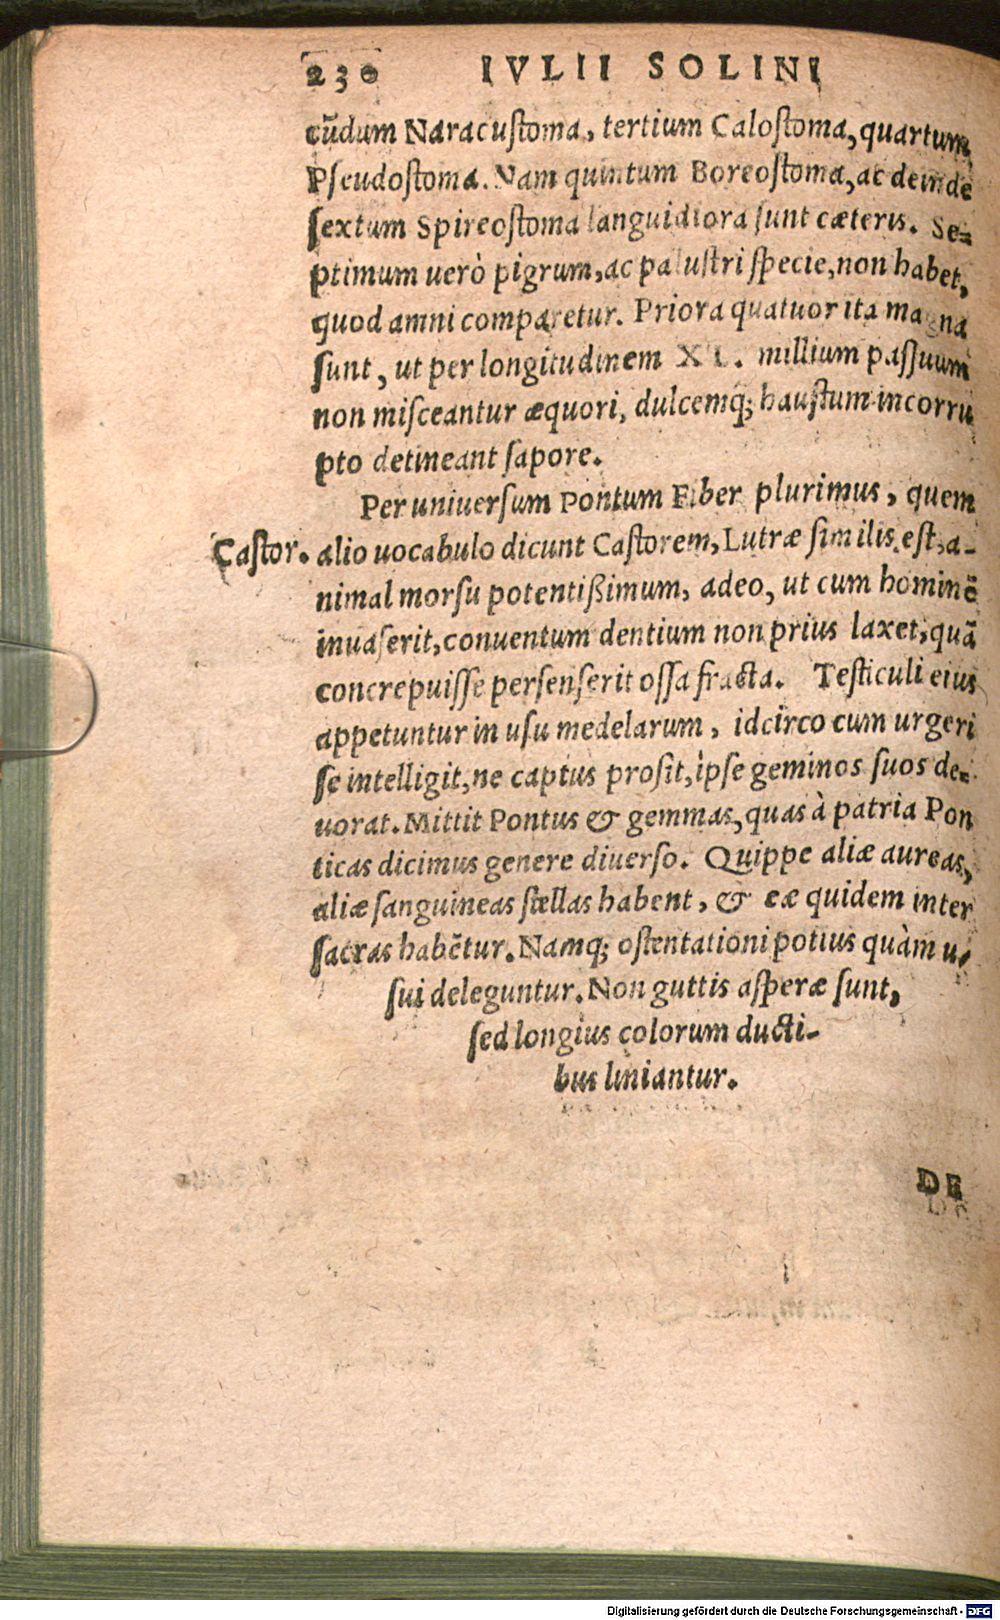 230 IVLII SOLINI
cūdum Naracuſtoma, tertium Caloſtoma, quartum
Pſeudoſtoma. Nam quintum Boreoſtoma, ac deinde
ſextum Spireoſtoma languidiora ſunt cæteris. Se-
ptimum uerò pigrum, ac paluſtri ſpecie, non habet,
quod amni comparetur. Priora quatuor ita magna
ſunt, ut per longitudinem XL. millium paſſuum
non miſceantur æquori, dulcemq; hauſtum incorru
pto detineant ſapore.
Per uniuerſum Pontum Fiber plurimus, quem
Caſtor. alio uocabulo dicunt Caſtorem, Lutræ ſimilis eſt, a-
nimal morſu potentißimum, adeo, ut cum hominē
inuaſerit, conuentum dentium non prius laxet, quā
concrepuiſſe perſenſerit oſſa fracta. Teſticuli eius
appetuntur in uſu medelarum, idcirco cum urgeri
ſe intelligit, ne captus proſit, ipſe geminos ſuos de-
uorat. Mittit Pontus & gemmas, quas à patria Pon
ticas dicimus genere diuerſo. Quippe aliæ aureas,
aliæ ſanguineas ſtellas habent, & eæ quidem inter
ſacras habētur. Namq; oſtentationi potius quàm u-
ſui deleguntur. Non guttis aſperæ ſunt,
ſed longius colorum ducti-
bus liniantur.
DE
Digitalisierung gefördert durch die Deutsche Forschungsgemeinschaft - DFG